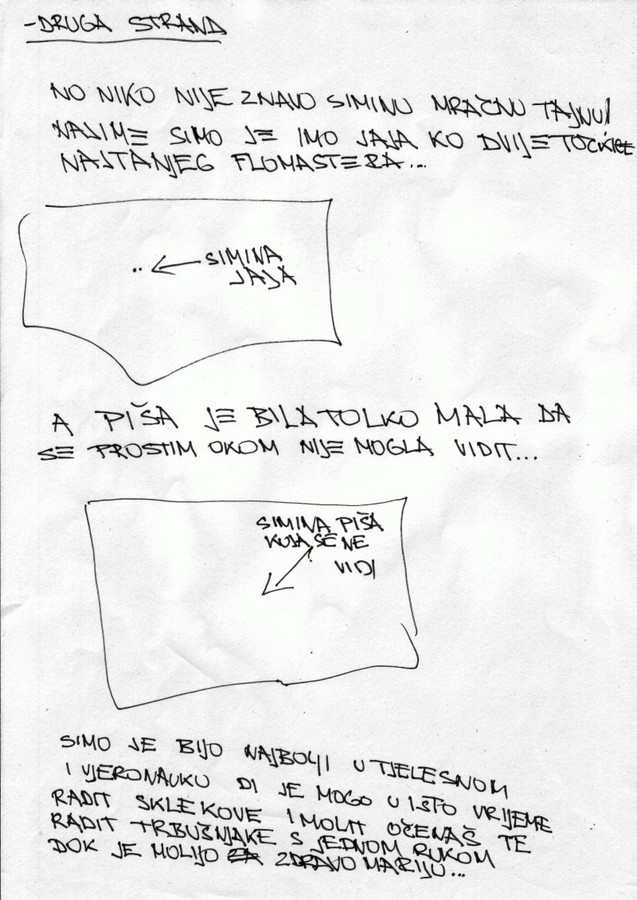 -DRUGA STRANA
NO NIKO NIJE ZNAVO SIMINU MRAČNU TAJNU!
NAJIME SIMO JE IMO JAJA KO DVIJE TOČKICE
NAJTANJEG FLOMASTERA...
.. ← SIMINA
JAJA
A PIŠA JE BILA TOLKO MALA DA
SE PROSTIM OKOM NIJE MOGLA VIDIT...
SIMINA PIŠA
KOJA SE NE
VIDI
SIMO JE BIJO NAJBOLJI U TJELESNOM
I VJERONAUKU DI JE MOGO U ISTO VRIJEME
RADIT SKLEKOVE I MOLIT OČENAŠ TE
RADIT TRBUŠNJAKE S JEDNOM RUKOM
DOK JE MOLIJO ZDRAVO MARIJU...